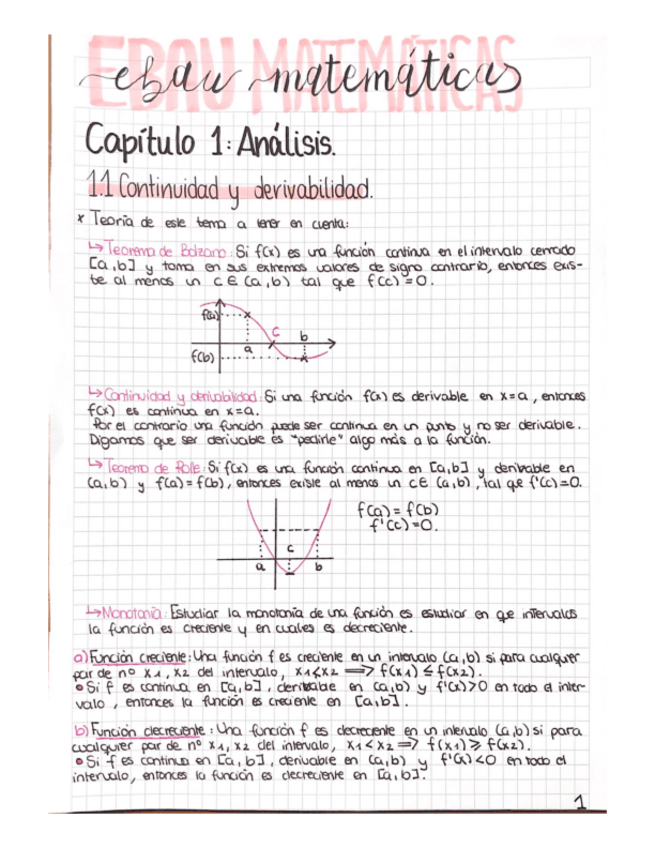 EBAU MATEMÁTICAS
ebau matemáticas
Capítulo 1: Análisis.
1.1 Continuidad y derivabilidad.
* Teoría de este tema a tener en cuenta:
↳ Teorema de Bolzano: Si f(x) es una función continua en el intervalo cerrado
[a,b] y toma en sus extremos valores de signo contrario, entonces exis-
te al menos un c ∈ (a,b) tal que f(c)=0.
f(a)
c
b
a
f(b)
↳ Continuidad y derivabilidad: Si una función f(x) es derivable en x=a, entonces
f(x) es continua en x=a.
Por el contrario una función puede ser continua en un punto y no ser derivable.
Digamos que ser derivable es "pedirle" algo más a la función.
↳ Teorema de Rolle: Si f(x) es una función continua en [a,b] y derivable en
(a,b) y f(a)=f(b), entonces existe al menos un c ∈ (a,b), tal que f'(c)=0.
f(a)=f(b)
f'(c)=0.
c
a
b
↳ Monotonía: Estudiar la monotonía de una función es estudiar en que intervalos
la función es creciente y en cuales es decreciente.
a) Función creciente: Una función f es creciente en un intervalo (a,b) si para cualquier
par de nº x1, x2 del intervalo, x1<x2 ⟹ f(x1) ≤ f(x2).
• Si f es continua en [a,b], derivable en (a,b) y f'(x)>0 en todo el inter-
valo, entonces la función es creciente en [a,b].
b) Función decreciente: Una función f es decreciente en un intervalo (a,b) si para
cualquier par de nº x1, x2 del intervalo, x1<x2 ⟹ f(x1) ≥ f(x2).
• Si f es continua en [a,b], derivable en (a,b) y f'(x)<0 en todo el
intervalo, entonces la función es decreciente en [a,b].
1